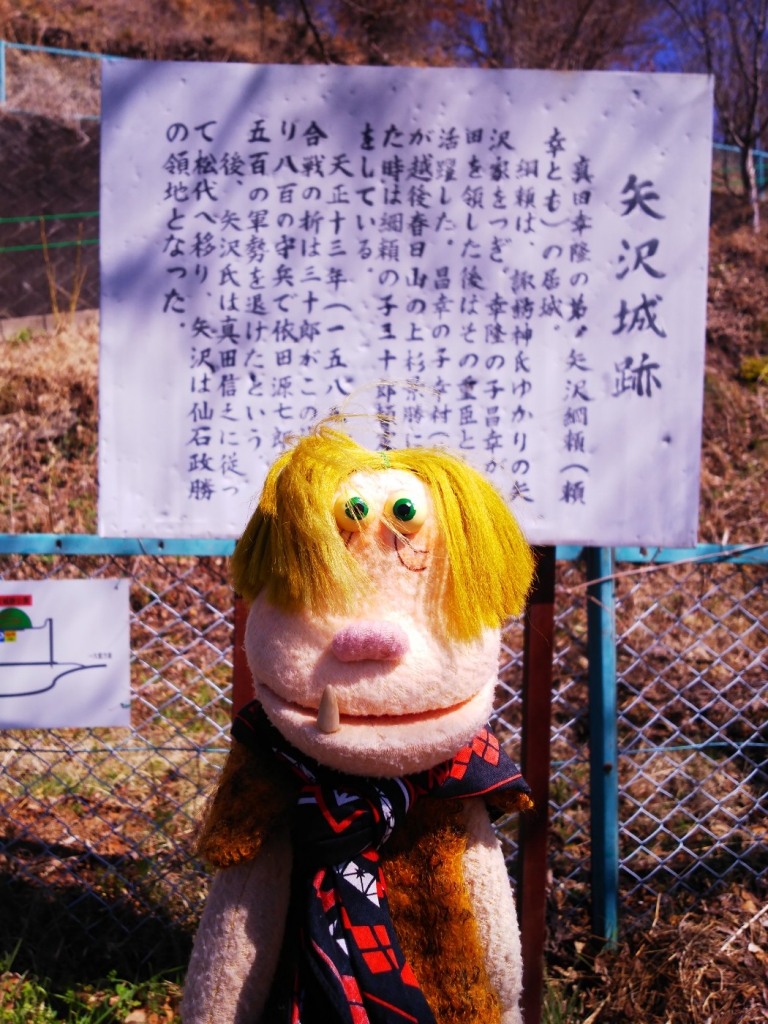 矢沢城跡
真田幸隆の弟、矢沢綱頼（頼
幸とも）の居城。
綱頼は、諏訪神氏ゆかりの矢
沢家をつぎ、幸隆の子昌幸が
田を領した後はその重臣と
活躍した。昌幸の子幸村（
が越後春日山の上杉景勝に
た時は綱頼の子三十郎頼
をしている。
天正十三年（一五八
合戦の折は三十郎がこの
り八百の守兵で依田源七郎
五百の軍勢を退けたという。
後、矢沢氏は真田信之に従っ
て松代へ移り、矢沢は仙石政勝
の領地となった。